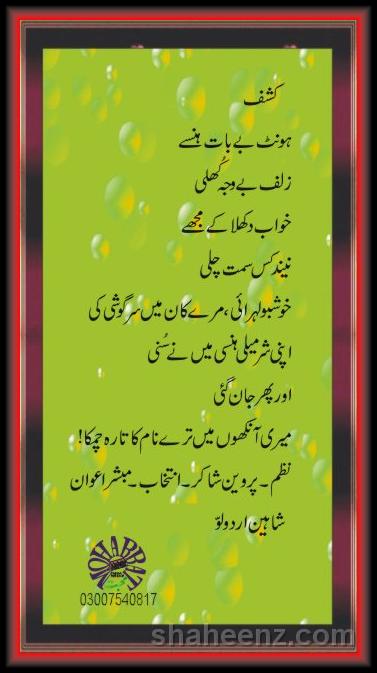 کشف
ہونٹ بے بات ہنسے
زلف بے وجہ کُھلی
خواب دکھلا کے مجھے
نیند کس سمت چلی
خوشبو لہرائی، مرے کان میں سرگوشی کی
اپنی شرمیلی ہنسی میں نے سُنی
اور پھر جان گئی
میری آنکھوں میں ترے نام کا تارہ چمکا!
نظم۔ پروین شاکر۔ انتخاب۔ مبشر اعوان
شاہین اردو لوّ
03007540817
shaheenz.com